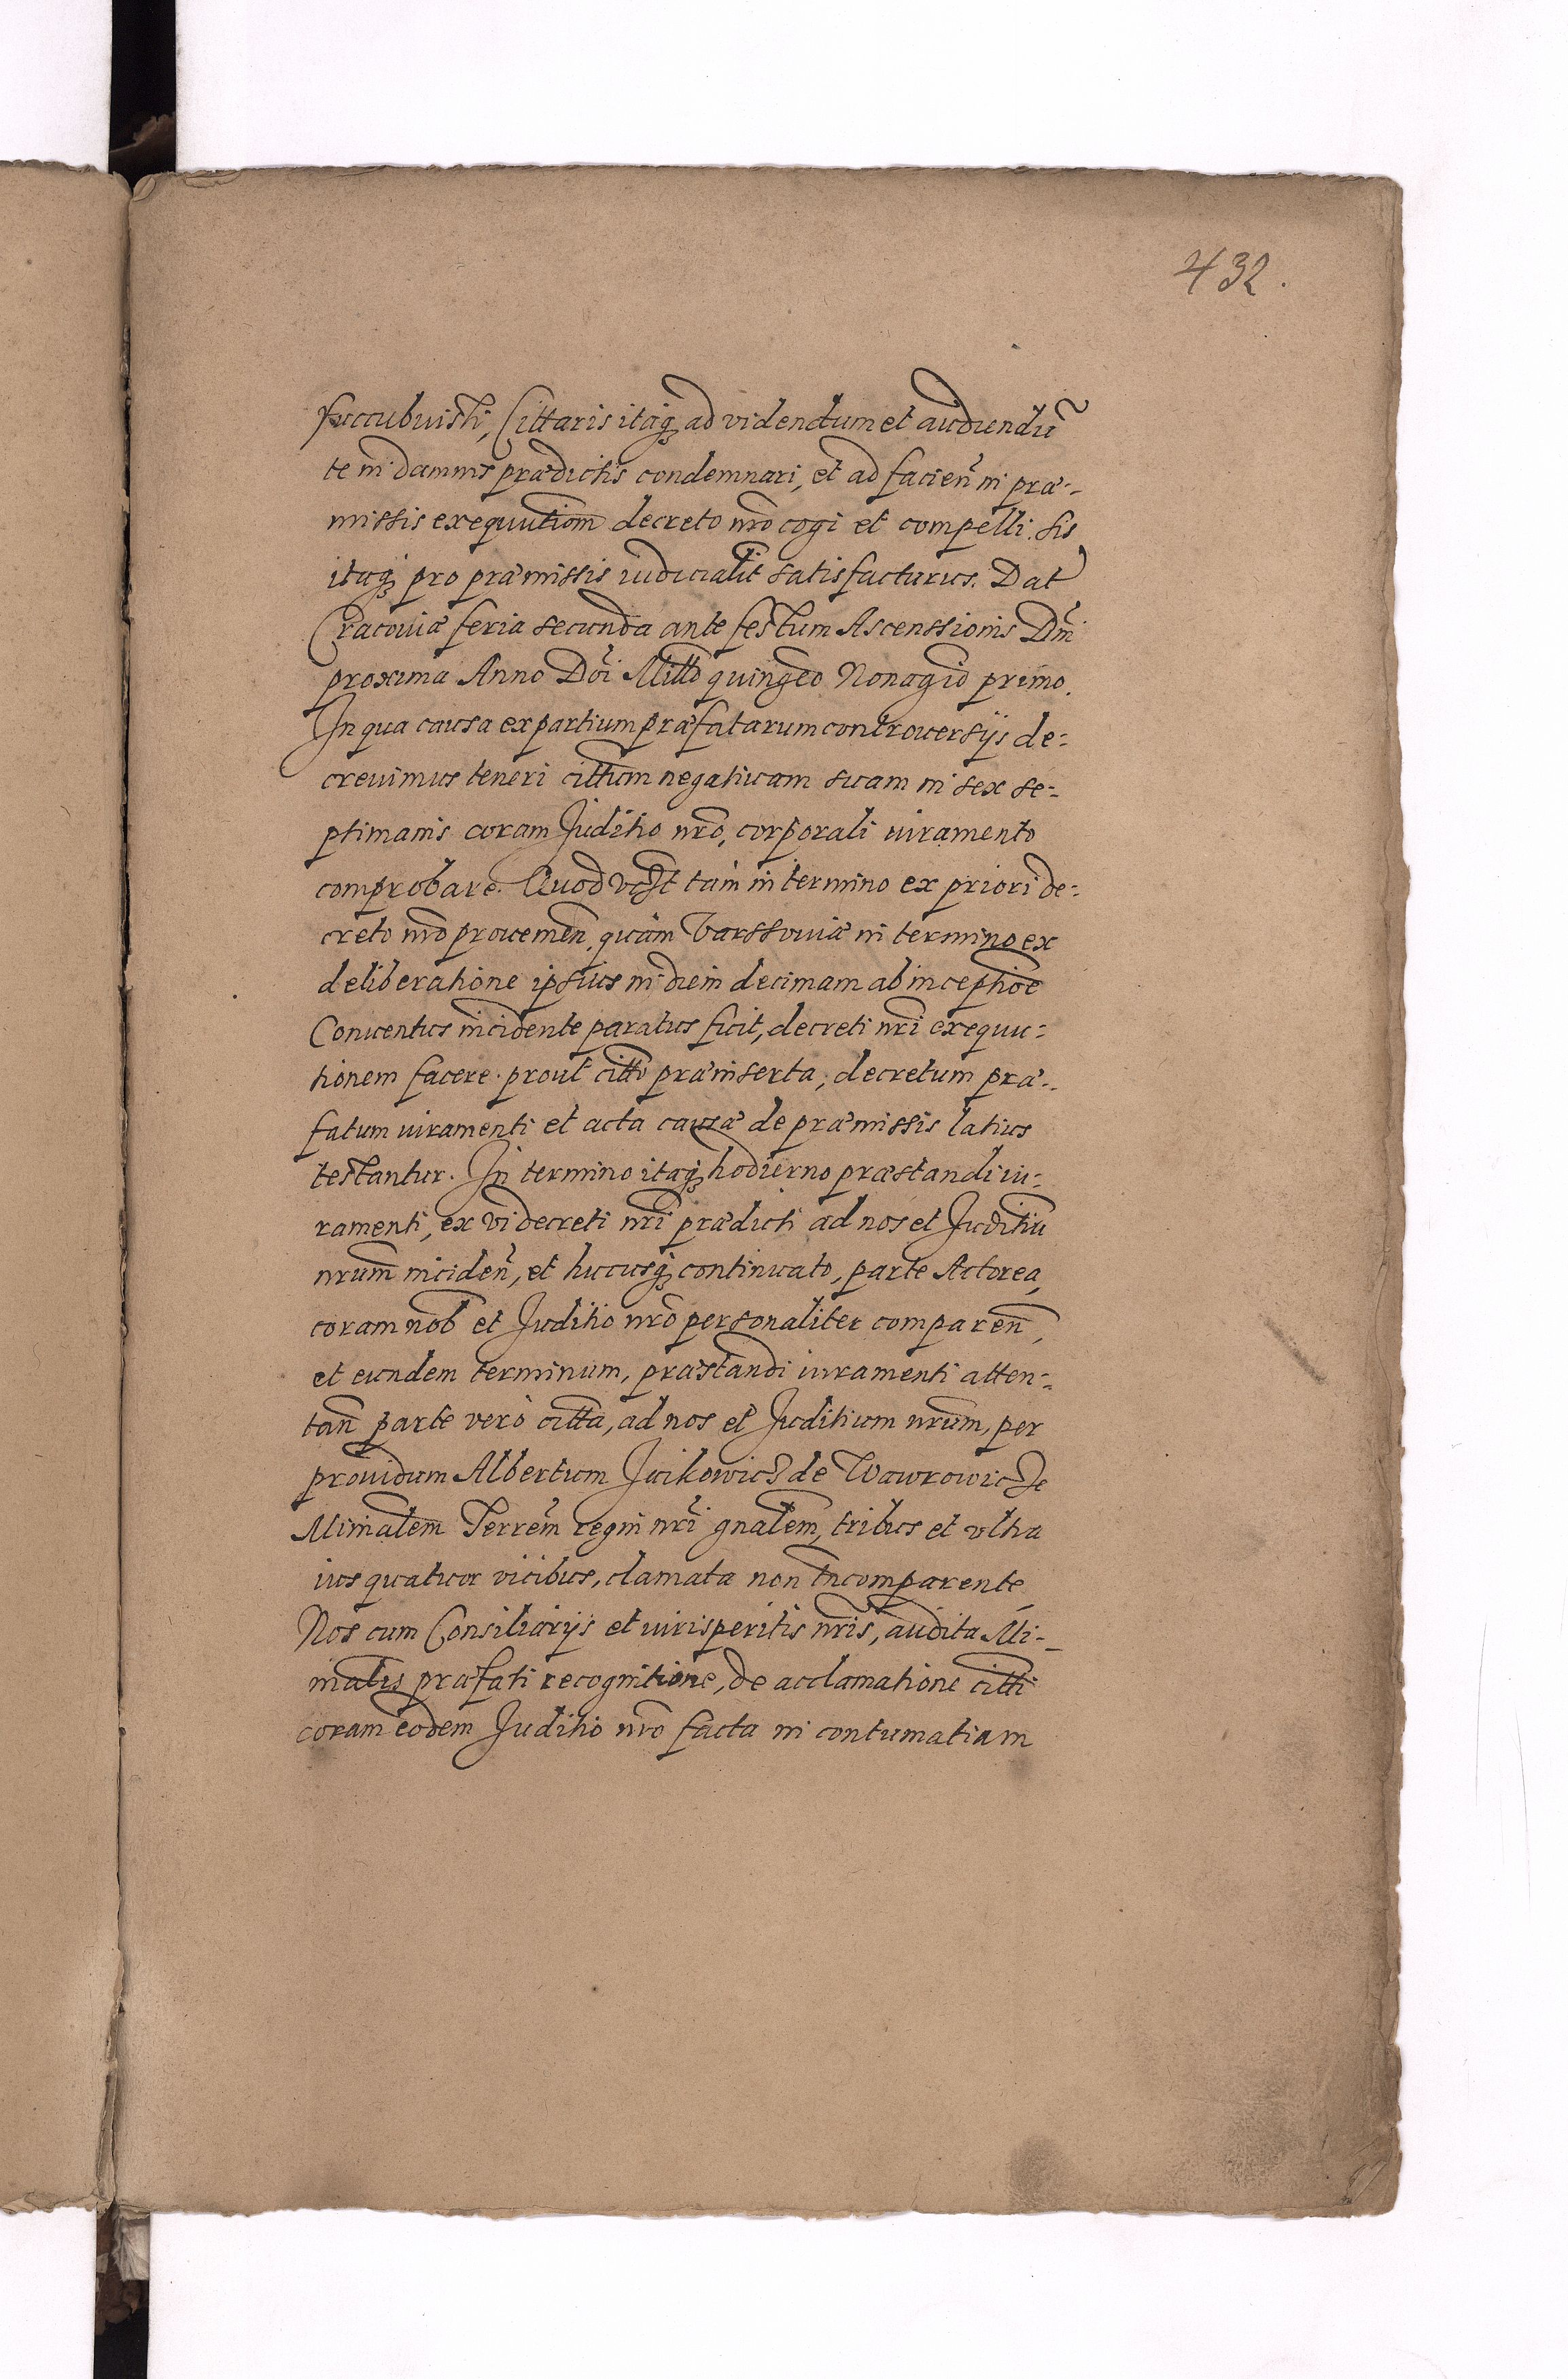 432.
succubuisti, Cittaris itaq₃ ad videndum et audiendū
te in damnis prædictis condemnari, et ad facien̄ in præ-
missis exequutiom̄ decreto nrō cogi et compelli. Sis
itaq₃ pro præmissis iudicialit̄ satisfacturus. Dat̄
Cracouiæ feria secunda ante festum Ascenssionis Dn̄i
proxima Anno Dn̄i Millo quingeō Nonagīo primo.
In qua causa ex partium præfatarum controuersijs de-
creuimus teneri cittum negatiuam suam in sex se-
ptimanis coram Juditio nrō, corporali iuramento
comprobare. Quod tam in termino ex priori de-
creto nrō prouemen̄, quàm Varssouiæ in termino ex
deliberatione ipsius in diem decimam ab inceptiōe
Conuentus incidente paratus fuit, decreti nrī exequu-
tionem facere. prout cittō præinserta, decretum præ-
fatum iuramenti et acta causæ de præmissis latius
testantur. In termino itaq₃ hodierno præstandi iu-
ramenti, ex vi decreti nrī prædicti ad nos et Juditiū
nrum̄ inciden̄, et hucusq₃ continuato, parte Actorea,
coram nob̄ et Juditio nrō personaliter comparen̄,
et eundem terminum, præstandi iuramenti atten-
tan̄ parte verò citta, ad nos et Juditium nrum̄, per
prouidum Albertum Juikowicz de Wawrowicze
Minialem̄ Terrem̄ regni nrī gnalem̄, tribus et vltra
ius quatuor vicibus, clamata non tn̄ comparente,
Nos cum Consiliarijs et iurisperitis nrīs, audita Mi-
nialis præfati recognitione, de acclamatione citti
coram eodem Juditio nrō facta in contumatiam